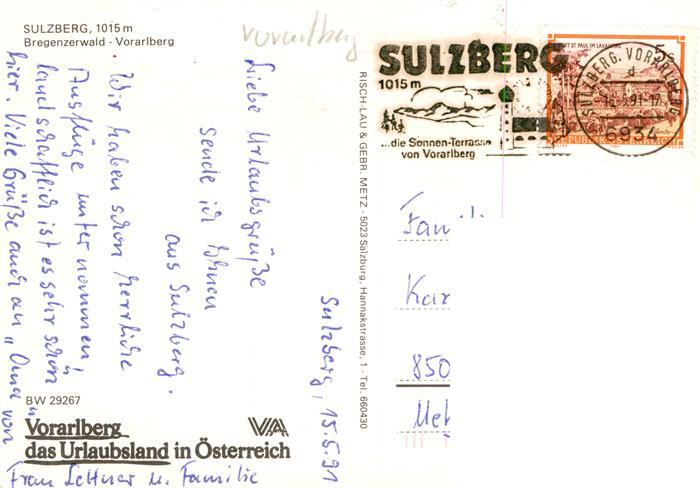 SULZBERG, 1015 m
Bregenzerwald - Vorarlberg
vorarlberg
Sulzberg, 15.5.91
Liebe Urlaubsgrüße
sende ich Ihnen
aus Sulzberg.
Wir haben schon herrliche
Ausflüge unternommen,
landschaftlich ist es sehr schön
hier. Viele Grüße auch an „Oma" von
Frau Lettner u. Familie
BW 29267
Vorarlberg
das Urlaubsland in Österreich
VA
RISCH-LAU & GEBR. METZ - 5023 Salzburg, Hannakstrasse, 1 - Tel. 660430
SULZBERG
1015 m
...die Sonnen-Terrasse
von Vorarlberg
STIFT ST. PAUL IM LAVANTTAL
5 S
REPUBLIK ÖSTERREICH
SULZBERG, VORARLBERG
d
6934
Fami
Kar
850